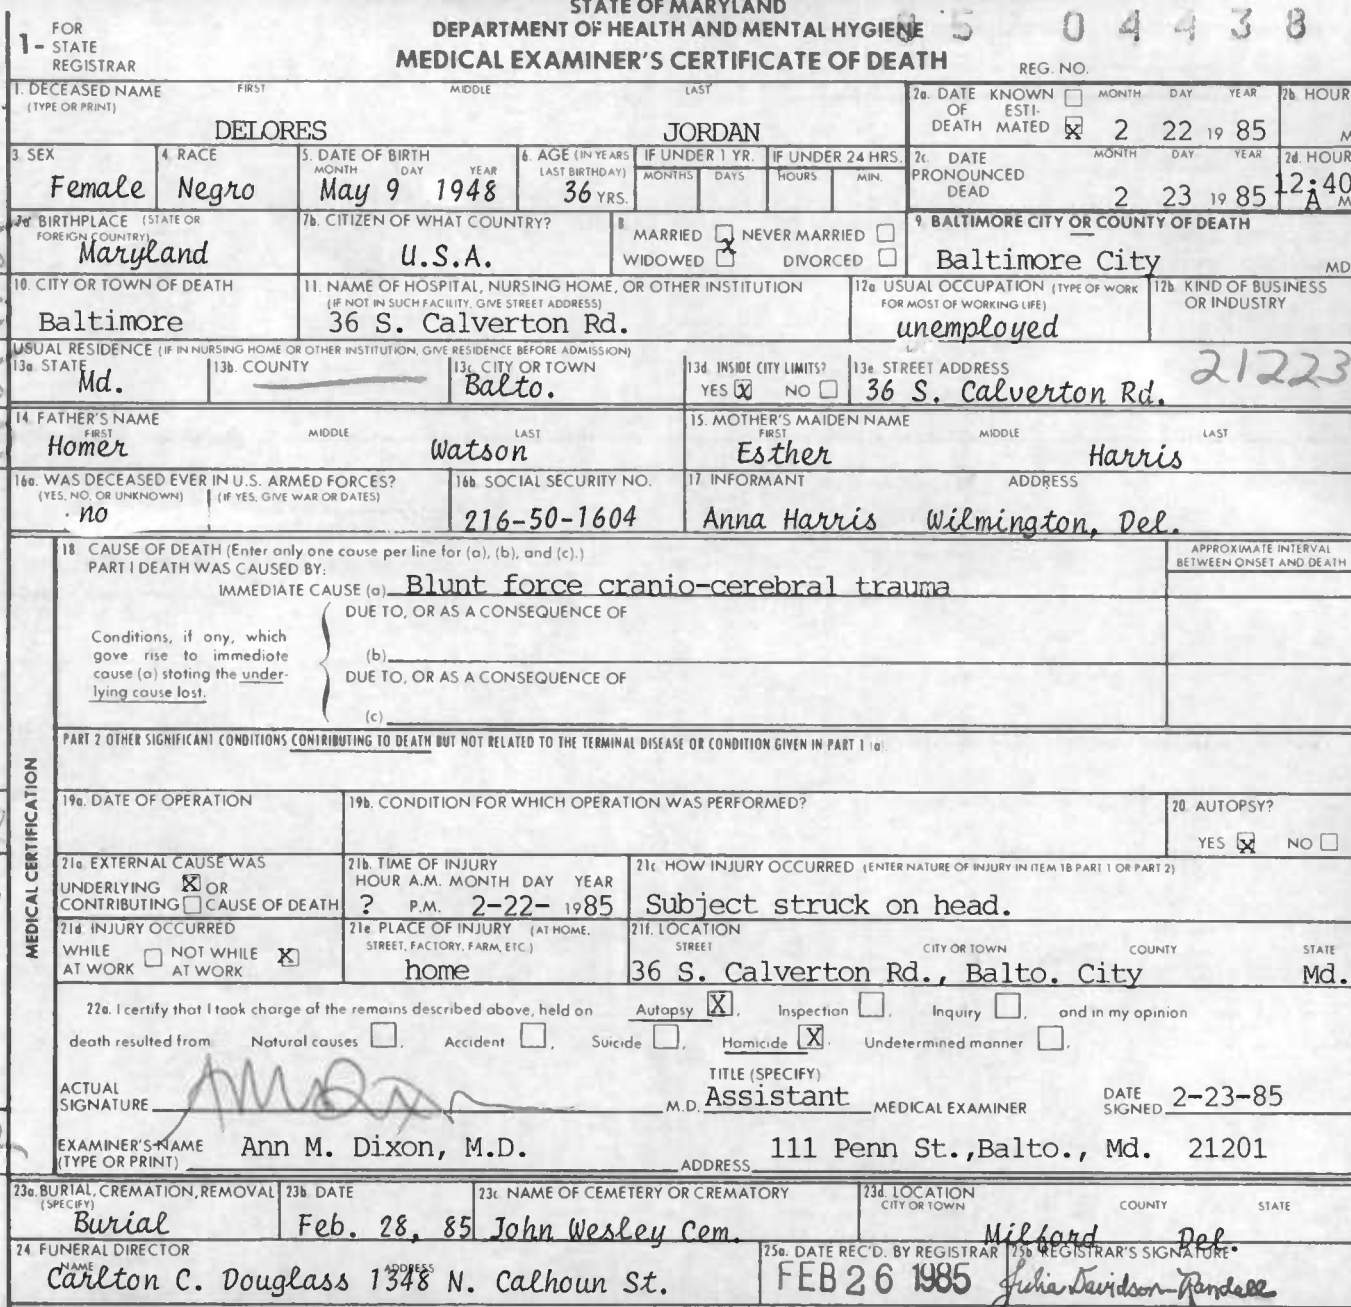 STATE OF MARYLAND
DEPARTMENT OF HEALTH AND MENTAL HYGIENE
MEDICAL EXAMINER'S CERTIFICATE OF DEATH
1- FOR STATE REGISTRAR
85 04438
REG. NO.
1. DECEASED NAME (TYPE OR PRINT) FIRST MIDDLE LAST
DELORES JORDAN
2a. DATE OF DEATH KNOWN ESTI-MATED X MONTH DAY YEAR 2 22 19 85
2b. HOUR M
3. SEX Female
4. RACE Negro
5. DATE OF BIRTH MONTH DAY YEAR May 9 1948
6. AGE (IN YEARS LAST BIRTHDAY) 36 YRS.
IF UNDER 1 YR. MONTHS DAYS
IF UNDER 24 HRS. HOURS MIN.
2c. DATE PRONOUNCED DEAD MONTH DAY YEAR 2 23 19 85
2d. HOUR 12:40 A M
7a. BIRTHPLACE (STATE OR FOREIGN COUNTRY) Maryland
7b. CITIZEN OF WHAT COUNTRY? U.S.A.
8 MARRIED NEVER MARRIED
X
WIDOWED DIVORCED
9. BALTIMORE CITY OR COUNTY OF DEATH
Baltimore City MD
10. CITY OR TOWN OF DEATH
Baltimore
11. NAME OF HOSPITAL, NURSING HOME, OR OTHER INSTITUTION
(IF NOT IN SUCH FACILITY, GIVE STREET ADDRESS)
36 S. Calverton Rd.
12a. USUAL OCCUPATION (TYPE OF WORK FOR MOST OF WORKING LIFE)
unemployed
12b. KIND OF BUSINESS OR INDUSTRY
USUAL RESIDENCE (IF IN NURSING HOME OR OTHER INSTITUTION, GIVE RESIDENCE BEFORE ADMISSION)
13a. STATE Md.
13b. COUNTY
13c. CITY OR TOWN Balto.
13d. INSIDE CITY LIMITS? YES X NO
13e. STREET ADDRESS 36 S. Calverton Rd. 21223
14. FATHER'S NAME FIRST MIDDLE LAST
Homer Watson
15. MOTHER'S MAIDEN NAME FIRST MIDDLE LAST
Esther Harris
16a. WAS DECEASED EVER IN U.S. ARMED FORCES?
(YES, NO, OR UNKNOWN) (IF YES, GIVE WAR OR DATES)
no
16b. SOCIAL SECURITY NO.
216-50-1604
17. INFORMANT ADDRESS
Anna Harris Wilmington, Del.
MEDICAL CERTIFICATION
18 CAUSE OF DEATH (Enter only one cause per line for (a), (b), and (c).)
PART I DEATH WAS CAUSED BY:
APPROXIMATE INTERVAL BETWEEN ONSET AND DEATH
IMMEDIATE CAUSE (a) Blunt force cranio-cerebral trauma
DUE TO, OR AS A CONSEQUENCE OF
Conditions, if any, which
gave rise to immediate
cause (a) stating the under-
lying cause last.
(b)
DUE TO, OR AS A CONSEQUENCE OF
(c)
PART 2 OTHER SIGNIFICANT CONDITIONS CONTRIBUTING TO DEATH BUT NOT RELATED TO THE TERMINAL DISEASE OR CONDITION GIVEN IN PART 1 (a).
19a. DATE OF OPERATION
19b. CONDITION FOR WHICH OPERATION WAS PERFORMED?
20. AUTOPSY?
YES X NO
21a. EXTERNAL CAUSE WAS
UNDERLYING X OR
CONTRIBUTING CAUSE OF DEATH
21b. TIME OF INJURY
HOUR A.M. MONTH DAY YEAR
? P.M. 2-22- 1985
21c HOW INJURY OCCURRED (ENTER NATURE OF INJURY IN ITEM 18 PART 1 OR PART 2)
Subject struck on head.
21d. INJURY OCCURRED
WHILE AT WORK NOT WHILE AT WORK X
21e. PLACE OF INJURY (AT HOME, STREET, FACTORY, FARM, ETC.)
home
21f. LOCATION
STREET CITY OR TOWN COUNTY STATE
36 S. Calverton Rd., Balto. City Md.
22a. I certify that I took charge of the remains described above, held on Autopsy X, Inspection, Inquiry, and in my opinion
death resulted from Natural causes, Accident, Suicide, Homicide X, Undetermined manner.
ACTUAL SIGNATURE M.D.
TITLE (SPECIFY)
Assistant MEDICAL EXAMINER
DATE SIGNED 2-23-85
EXAMINER'S NAME (TYPE OR PRINT) Ann M. Dixon, M.D.
ADDRESS 111 Penn St., Balto., Md. 21201
23a. BURIAL, CREMATION, REMOVAL (SPECIFY) Burial
23b. DATE Feb. 28, 85
23c. NAME OF CEMETERY OR CREMATORY John Wesley Cem.
23d. LOCATION CITY OR TOWN COUNTY STATE
Milford Del.
24. FUNERAL DIRECTOR
NAME ADDRESS
Carlton C. Douglass 1348 N. Calhoun St.
25a. DATE REC'D. BY REGISTRAR
FEB 26 1985
25b REGISTRAR'S SIGNATURE
Julia Davidson-Randall